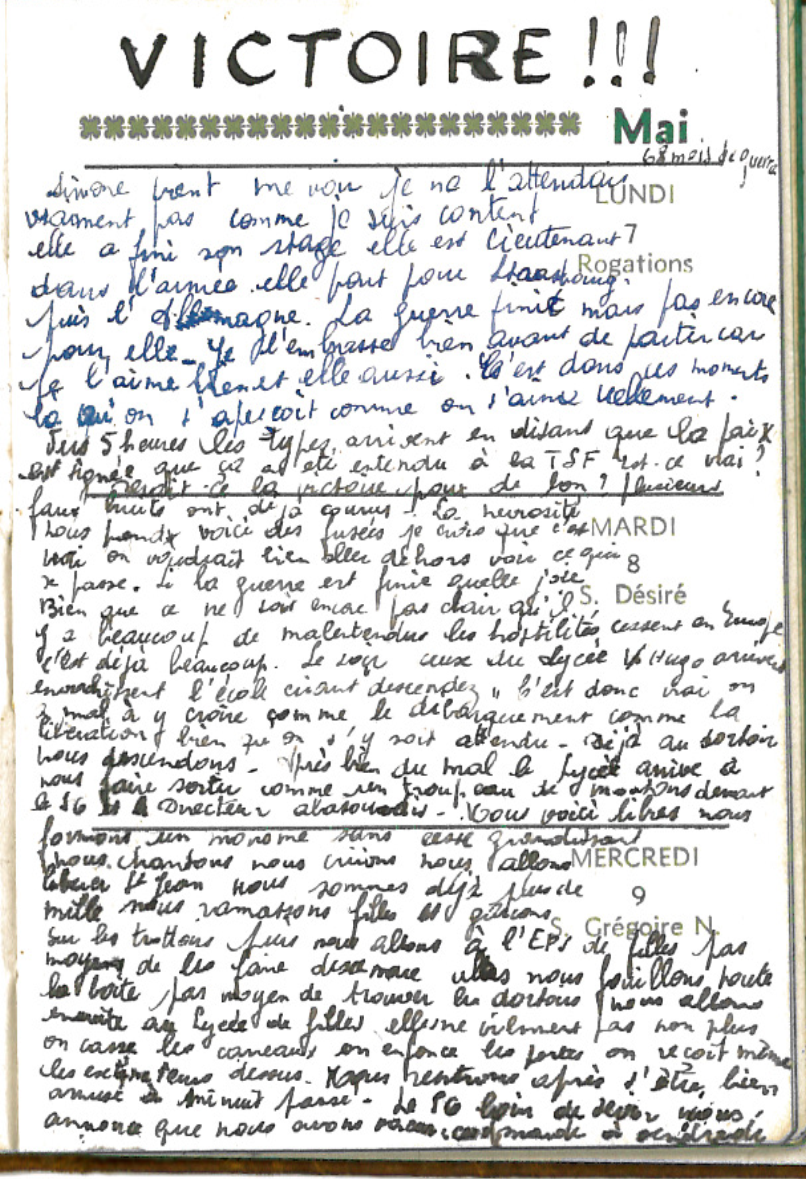 VICTOIRE !!!
Mai
68 mois de guerre
Simone vient me voir je ne l'attendais
LUNDI
vraiment pas comme je suis content
elle a fini son stage elle est lieutenant
7
dans l'armée elle part pour Strasbourg
Rogations
puis l'Allemagne. La guerre finit mais pas encore
pour elle - Je l'embrasse bien avant de partir car
je l'aime bien et elle aussi. C'est dans ces moments
là qu'on s'aperçoit comme on s'aime réellement.
Vers 5 heures les types arrivent en disant que la paix
est signée que ça a été entendu à la TSF est-ce vai?
Serait-ce la victoire pour de bon? plusieurs
faux bruits ont déjà courus ! La nervosité
nous prend voici des fusées je crois que c'est
MARDI
vrai on voudrait bien aller dehors voir ce qui
8
se passe. Si la guerre est finie quelle joie
S. Désiré
Bien que ce ne soit encore pas clair qu'il
y a beaucoup de malentendus les hostilités cessent en Europe
c'est déjà beaucoup. Le soir ceux du Lycée V Hugo arrivent
envahissent l'école criant descendez " C'est donc vrai on
a mal à y croire comme le débarquement comme la
libération bien qu'on s'y soit attendu - Déjà au dortoir
nous descendons - Après bien du mal le Lycée arrive à
nous faire sortir comme un troupeau de moutons devant
le SG et le Directeur abasourdis - Nous voici libres nous
formons un monome sans cesse grandissant
nous chantons nous crions nous allons
MERCREDI
libérer St Jean nous sommes déjà plus de
9
mille nous ramassons filles et garçons
S. Grégoire N.
sur les trottoirs puis nous allons à l'EPS de filles pas
moyen de les faire descendre nous fouillons toute
la boîte pas moyen de trouver les dortoirs nous allons
ensuite au Lycée de filles elles ne viennent pas non plus
on casse les carreaux on enfonce les portes on reçoit même
les extincteurs dessus. Nous rentrons après s'être bien
amusé à minuit passé - Le SG loin de sévir nous
annonce que nous avons vendredi